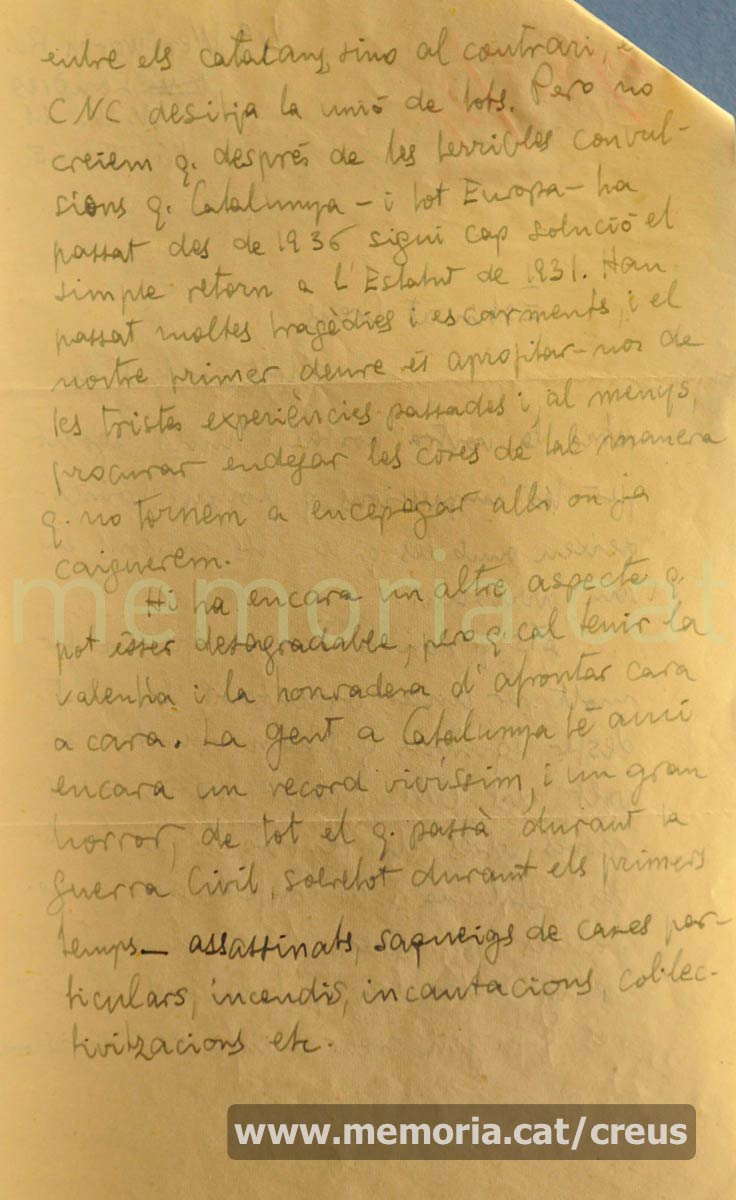 entre els catalans, sino al contrari, e
CNC desitja la unió de tots. Pero no
creiem q. després de les terribles convul-
sions q. Catalunya - i tot Europa - ha
passat des de 1936 sigui cap solució el
simple retorn a l'Estatut de 1931. Han
passat moltes tragèdies i escarments, i el
nostre primer deure és aprofitar-nos de
les tristes experiències passades i, al menys,
procurar endegar les coses de tal manera
q. no tornem a encepegar allí on ja
caiguerem.
Hi ha encara un altre aspecte q.
pot ésser desagradable, pero q cal tenir la
valentia i la honradesa d'afrontar cara
a cara. La gent a Catalunya té avui
encara un record vivíssim, i un gran
horror, de tot el q. passà durant la
guerra Civil, sobretot durant els primers
temps - assassinats, saqueigs de cases par-
ticulars, incendis, incautacions, col·lec-
tivitzacions etc.
memoria.cat
www.memoria.cat/creus